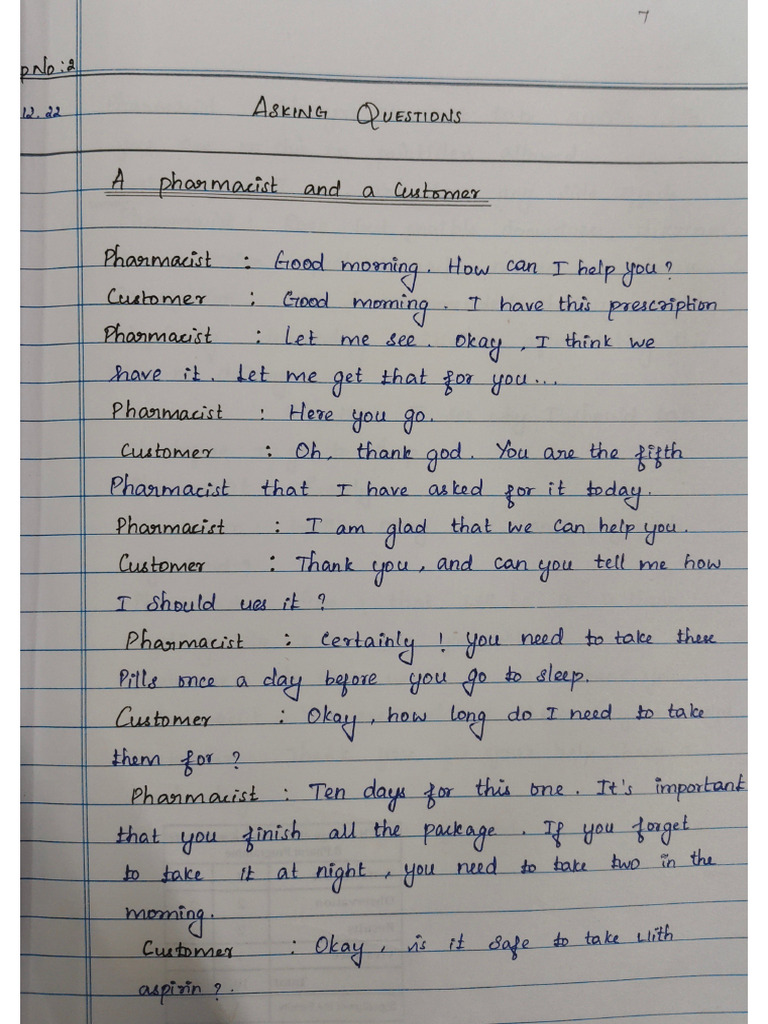 7
pNo:2
12.22
ASKING QUESTIONS
A pharmacist and a Customer
Pharmacist : Good morning. How can I help you?
Customer : Good morning. I have this prescription
Pharmacist : Let me see. Okay, I think we
have it. Let me get that for you...
Pharmacist : Here you go.
Customer : Oh, thank god. You are the fifth
Pharmacist that I have asked for it today.
Pharmacist : I am glad that we can help you.
Customer : Thank you, and can you tell me how
I should ues it ?
Pharmacist : Certainly ! you need to take these
Pills once a day before you go to sleep.
Customer : Okay, how long do I need to take
them for ?
Pharmacist : Ten days for this one. It's important
that you finish all the package. If you forget
to take it at night, you need to take two in the
morning.
Customer : Okay, is it safe to take with
aspirin ?.